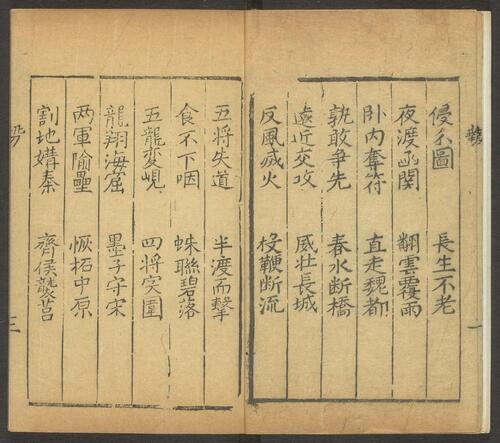 侵尒圖 長生不老
夜渡函関 翻雲覆雨
卧内奪符 直走魏都
孰敢争先 春水断橋
遠近交攻 威壮長城
反風滅火 投鞭断流
一
五将失道 半渡而擊
食不下咽 蛛聯碧落
五龍変峴 四将突圍
龍翔海窟 墨子守宋
两軍隃壘 恢拓中原
割地媾秦 齊侯襲莒
三